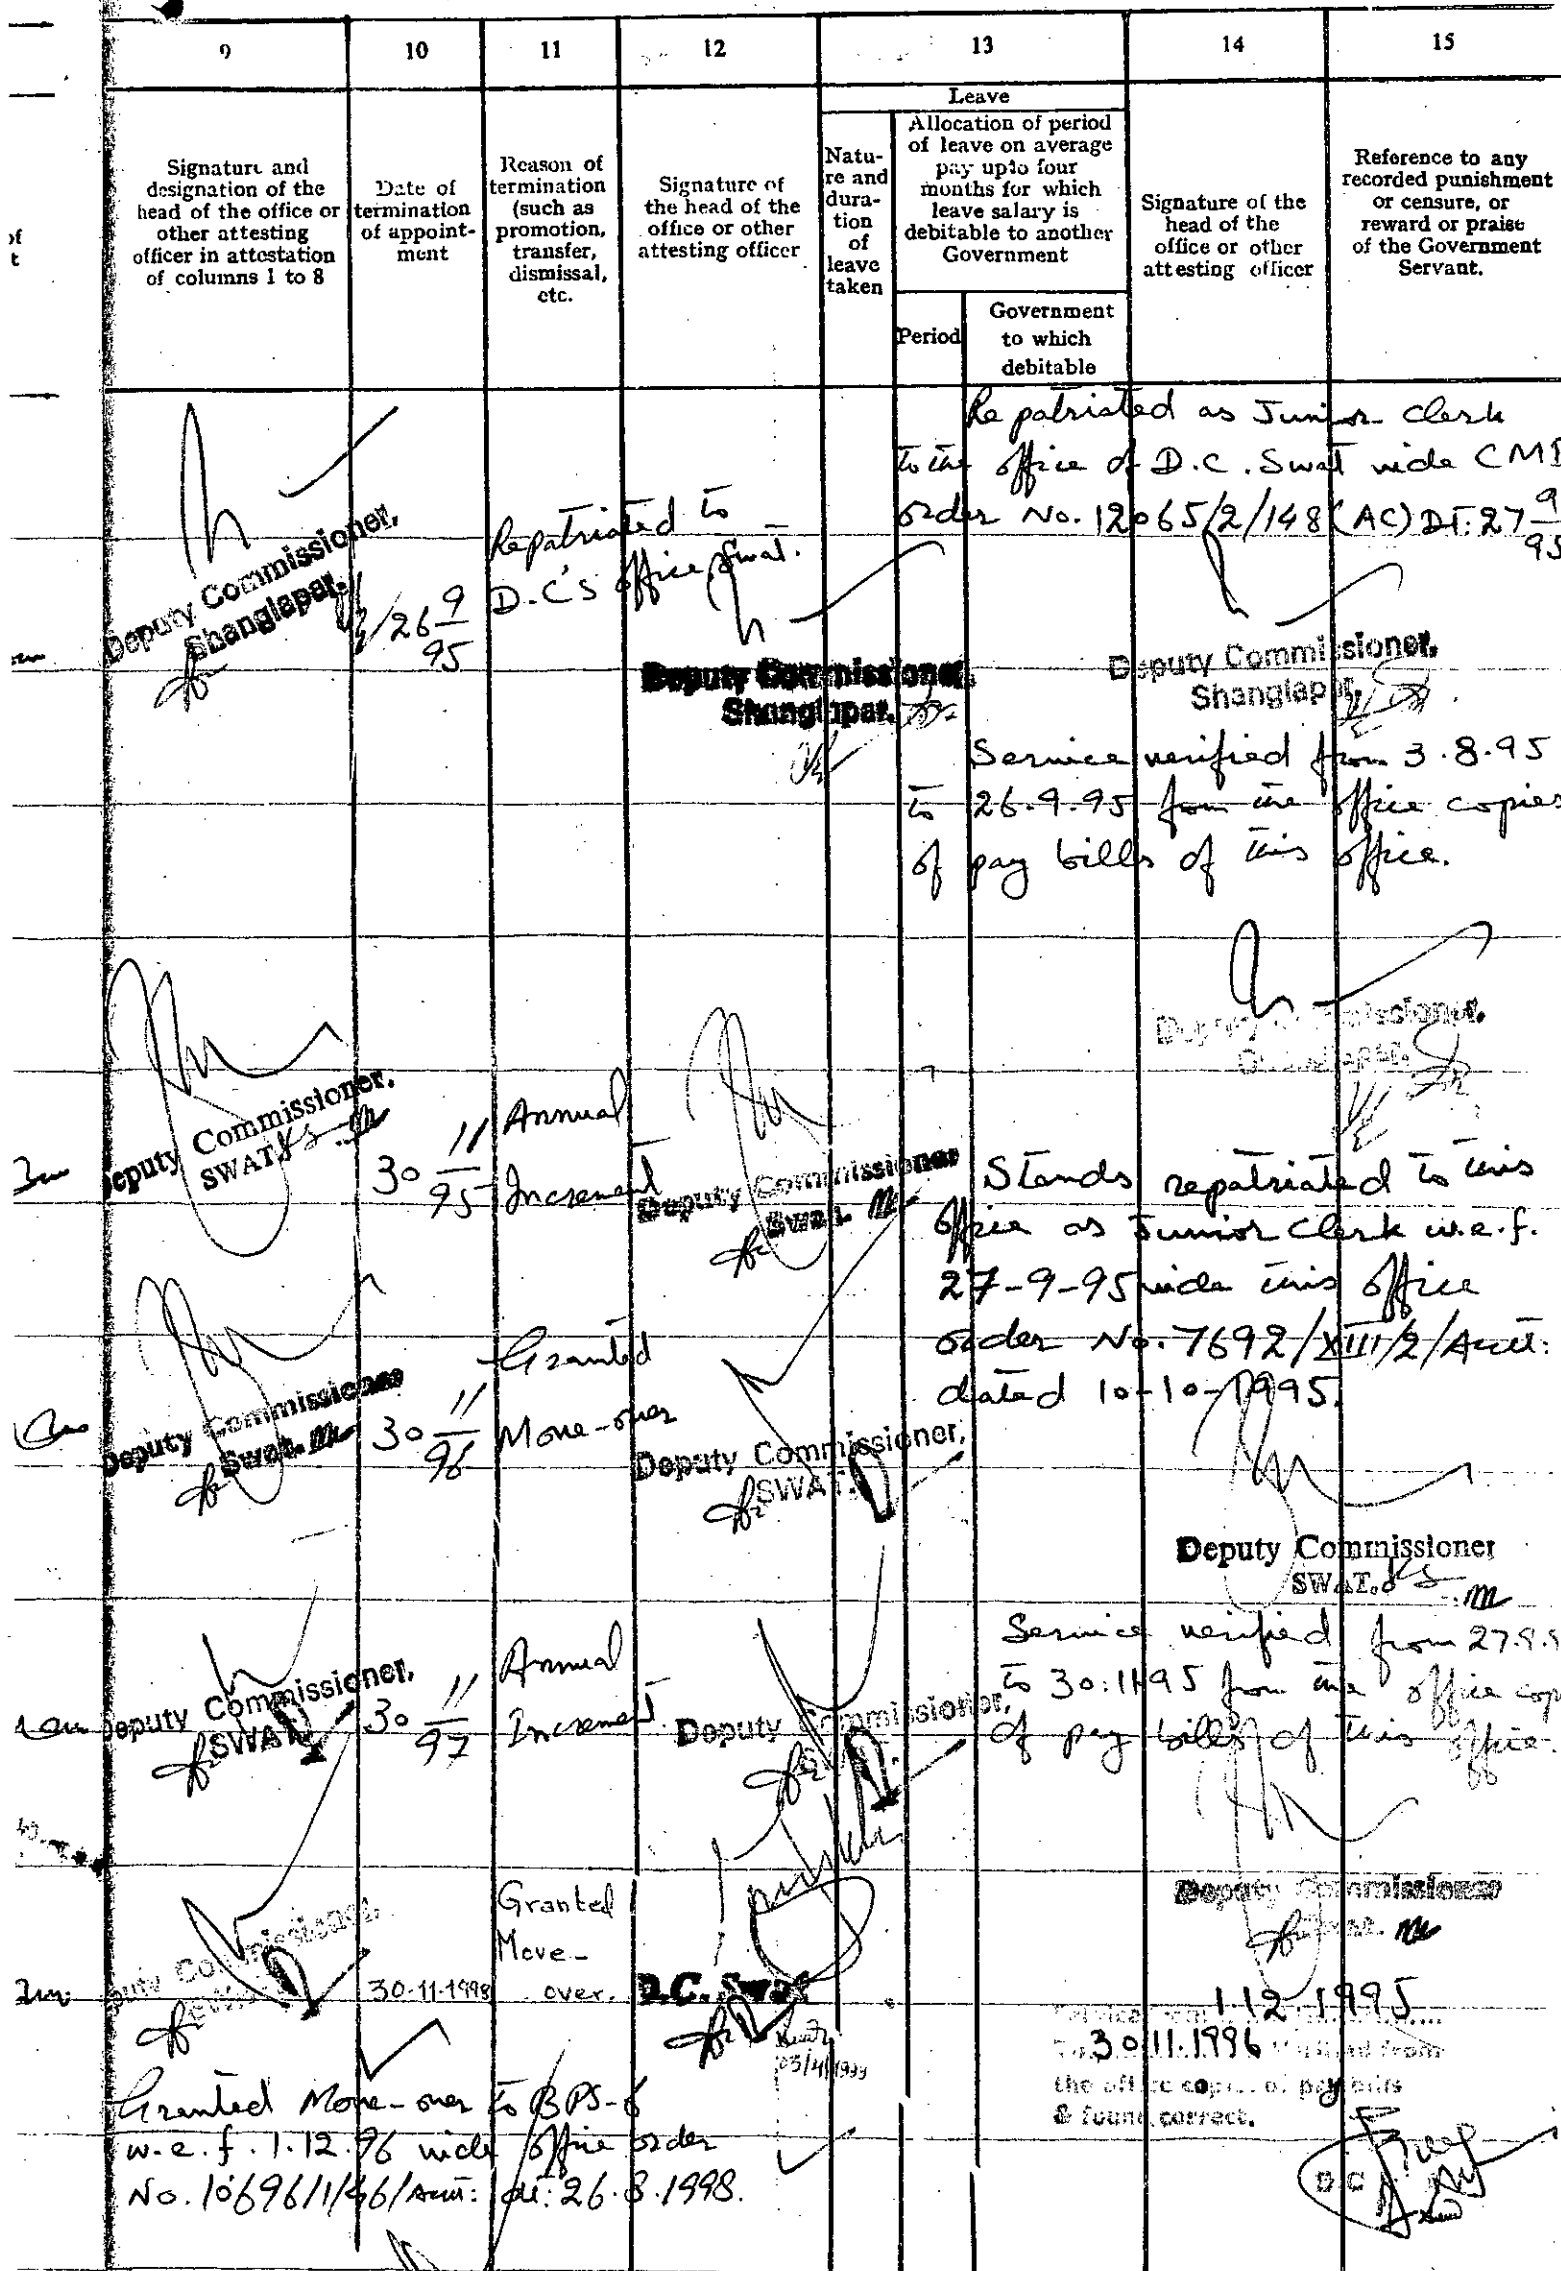 9 10 11 12 13 14 15
Signature and
designation of the
head of the office or
other attesting
officer in attestation
of columns 1 to 8
Date of
termination
of appoint-
ment
Reason of
termination
(such as
promotion,
transfer,
dismissal,
etc.
Signature of
the head of the
office or other
attesting officer
Leave
Natu-
re and
dura-
tion
of
leave
taken
Allocation of period
of leave on average
pay upto four
months for which
leave salary is
debitable to another
Government
Period
Government
to which
debitable
Signature of the
head of the
office or other
attesting officer
Reference to any
recorded punishment
or censure, or
reward or praise
of the Government
Servant.
Deputy Commissioner,
Shanglapar.
26 9/95
Repatriated to
D.C's office, Swat.
Deputy Commissioner,
Shanglapar.
Repatriated as Junior Clerk
to the office of D.C. Swat vide CMD
order No. 12065/2/148 (AC) DT: 27 9/95
Deputy Commissioner,
Shanglapar.
Service verified from 3.8.95
to 26.9.95 from the office copies
of pay bills of this office.
Deputy Commissioner,
Shanglapar.
Deputy Commissioner,
SWAT.
30 11/95
Annual
Increment
Deputy Commissioner
Swat.
Stands repatriated to this
office as Junior Clerk w.e.f.
27-9-95 vide this office
order No. 7692/XIII/2/Acctt:
dated 10-10-1995.
Deputy Commissioner
SWAT.
Deputy Commissioner
Swat.
30 11/96
Granted
Move-over
Deputy Commissioner,
SWAT.
Deputy Commissioner,
SWAT
30 11/97
Annual
Increment.
Deputy Commissioner,
Service verified from 27.9.9
to 30.11.95 from the office cop
of pay bills of this office.
Deputy Commissioner
Swat.
puty Commissioner,
30-11-1998
Granted
Move-
over.
D.C. Swat
03/4/1999
Service from 1.12.1995
To 30.11.1996 Verified from
the office copies of pay bills
& found correct.
D.C
Granted Move-over to BPS-6
w.e.f. 1.12.96 vide office order
No. 10696/1/46/Acctt: dt: 26.8.1998.